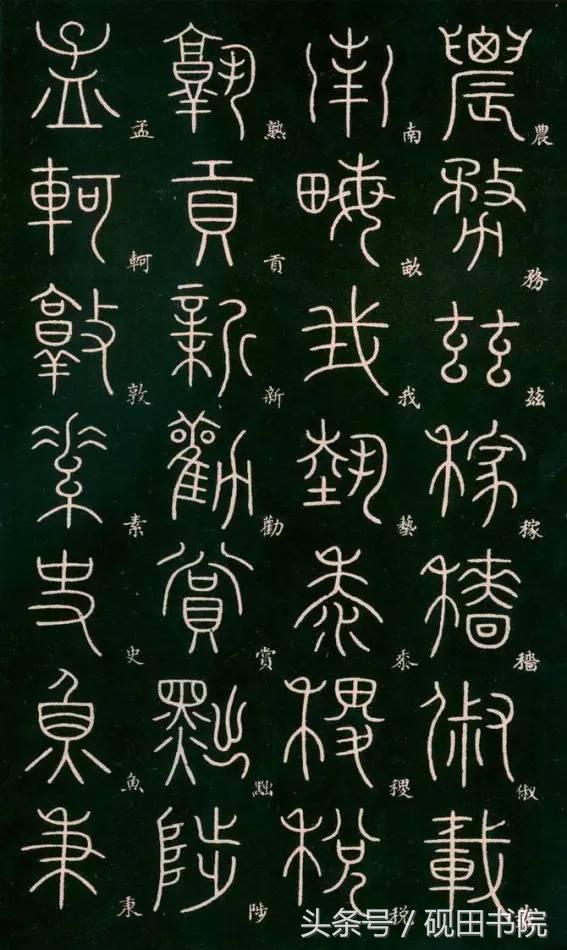 農務茲稼穡俶載
南畝我藝黍稷税
熟貢新勸賞黜陟
孟軻敦素史魚秉
头条号 / 砚田书院